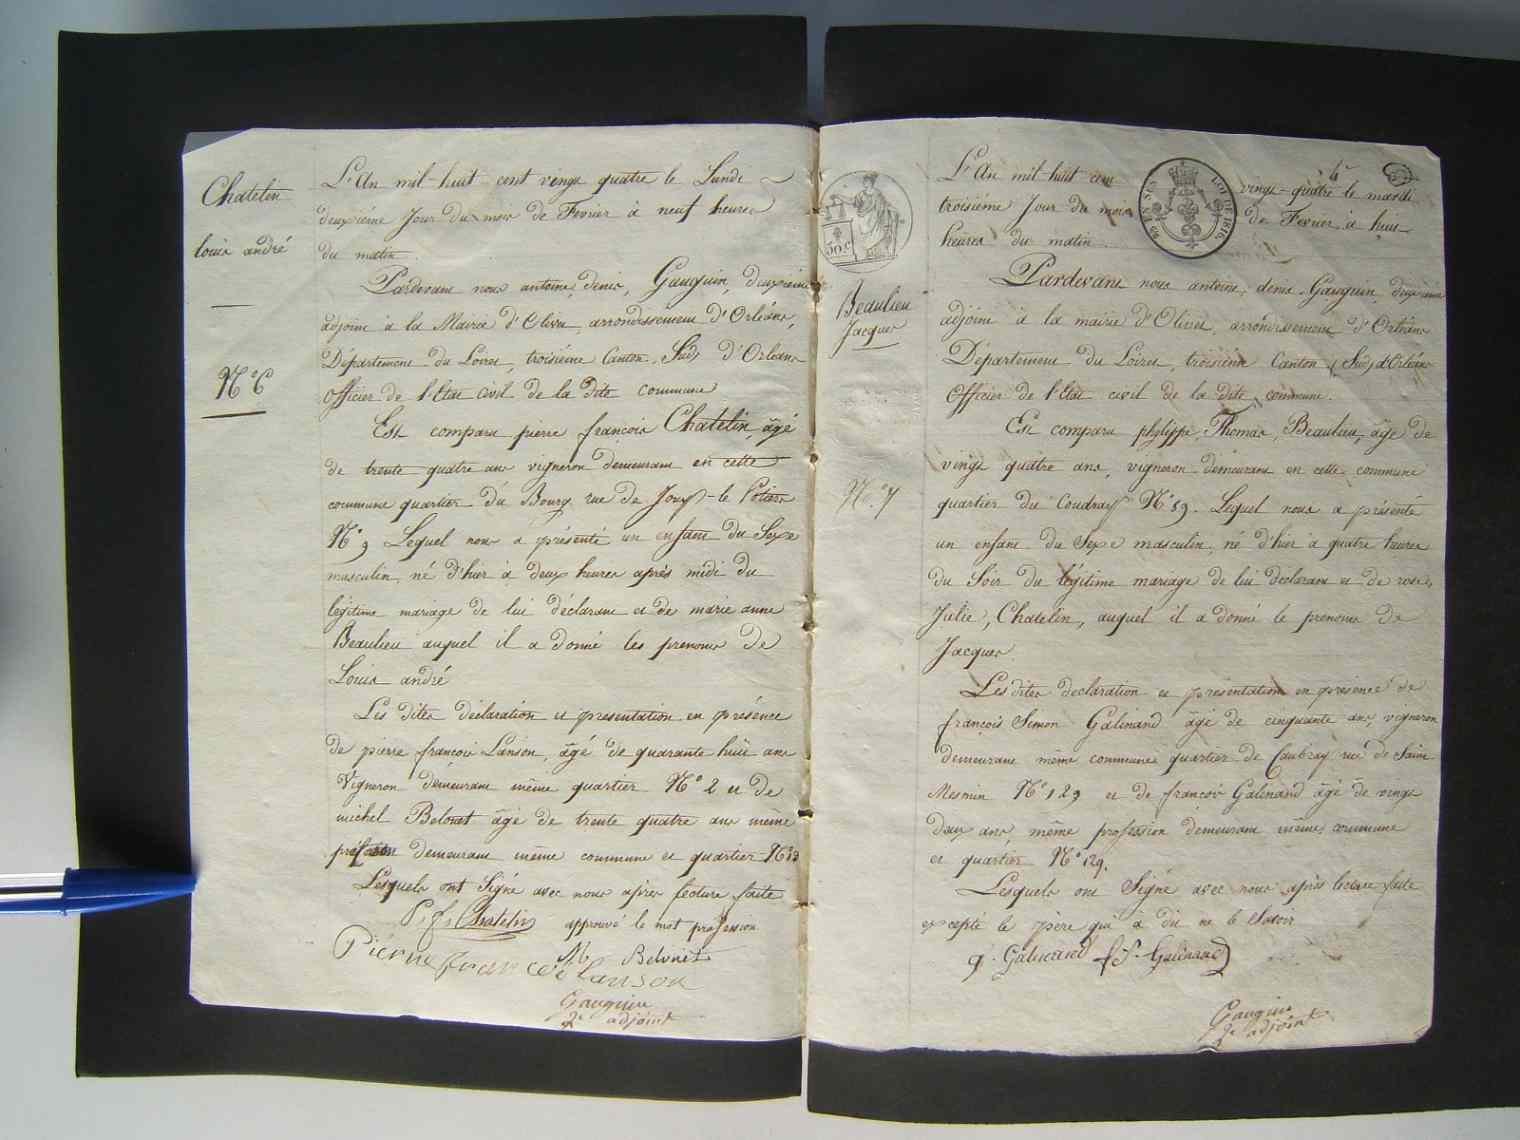 Chatelin
louis andré
N.° 6
L'An mil huit cent vingt quatre le Lundi
deuxième Jour du mois de Fevrier à neuf heures
du matin.
Pardevant nous antoine, denis, Gauguin, deuxième
adjoint à la Mairie d'Olivet, arrondissement d'Orléans,
Département du Loiret, troisième Canton, Sud, d'Orléans
Officier de l'Etat civil de la dite commune
Est comparu pierre françois Chatelin, âgé
de trente quatre ans vigneron demeurant en cette
commune quartier du Bourg rue de Jouy-le Potier
N.° 9 Lequel nous a présenté un enfant du Sexe
masculin, né d'hier à deux heures après midi du
légitime mariage de lui déclarant et de marie anne
Beaulieu auquel il a donné les prenoms de
Louis andré
Les dites déclaration et presentation en présence
de pierre françois Lanson, âgé de quarante huit ans
Vigneron demeurant même quartier N.° 2 et de
michel Belouet âgé de trente quatre ans même
demeurant même commune et quartier
Lesquels ont Signé avec nous après lecture faite
P. f. Chatelin approuvé le mot profession
M Belouet
Pierre francoi Lanson
Gauguin
2e adjoint
4
30 c
Beaulieu
Jacques
N.° 7
L'An mil-huit cent vingt-quatre le mardi
troisième Jour du mois de Fevrier à huit
heures du matin
Pardevant nous antoine, denis, Gauguin, deuxième
adjoint à la mairie d'Olivet, arrondissement d'Orléans
Département du Loiret, troisième Canton (Sud) d'Orléans
Officier de l'Etat civil de la dite commune.
Est comparu phylippe, Thomas, Beaulieu, âgé de
vingt quatre ans, vigneron demeurant en cette commune
quartier du Coudray N.° 59. Lequel nous a présenté
un enfant du Sexe masculin, né d'hier à quatre heures
du Soir du légitime mariage de lui déclarant et de rose,
Julie, Chatelin, auquel il a donné le prenom de
Jacques.
Les dites declaration et presentation en présence de
françois Simon Galinand âgé de cinquante ans, vigneron
demeurant même commune quartier de Caubray rue de Saint
Mesmin N.° 129 et de françois Galinand âgé de vingt
deux ans, même profession demeurant même commune
et quartier N.° 129.
Lesquels ont Signé avec nous après lecture faite
excepté le père qui a dit ne le Savoir
Galinand f S. Galinand
Gauguin
2e adjoint